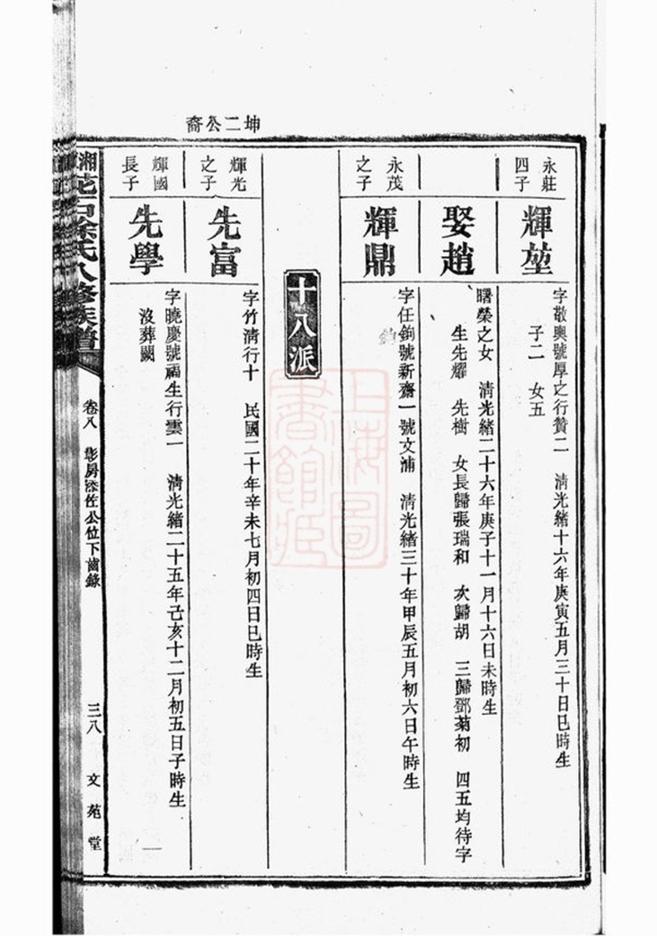 坤二公裔
永莊
四子
輝堃
字敬輿號厚之行贊二　清光緒十六年庚寅五月三十日巳時生
子二　女五
娶趙
曙榮之女　清光緒二十六年庚子十一月十六日未時生
生先耀　先樹　女長歸張瑞和　次歸胡　三歸鄧菊初　四五均待字
永茂
之子
輝鼎
字任鈞號新齋一號文浦　清光緒三十年甲辰五月初六日午時生
十八派
輝光
之子
先富
字竹清行十　民國二十年辛未七月初四日巳時生
輝國
長子
先學
字曉慶號福生行雲一　清光緒二十五年己亥十二月初五日子時生
沒葬闕
湘花石徐氏八修族譜
卷八　彰房添佐公位下齒錄
三八　文苑堂
上海圖
書館藏